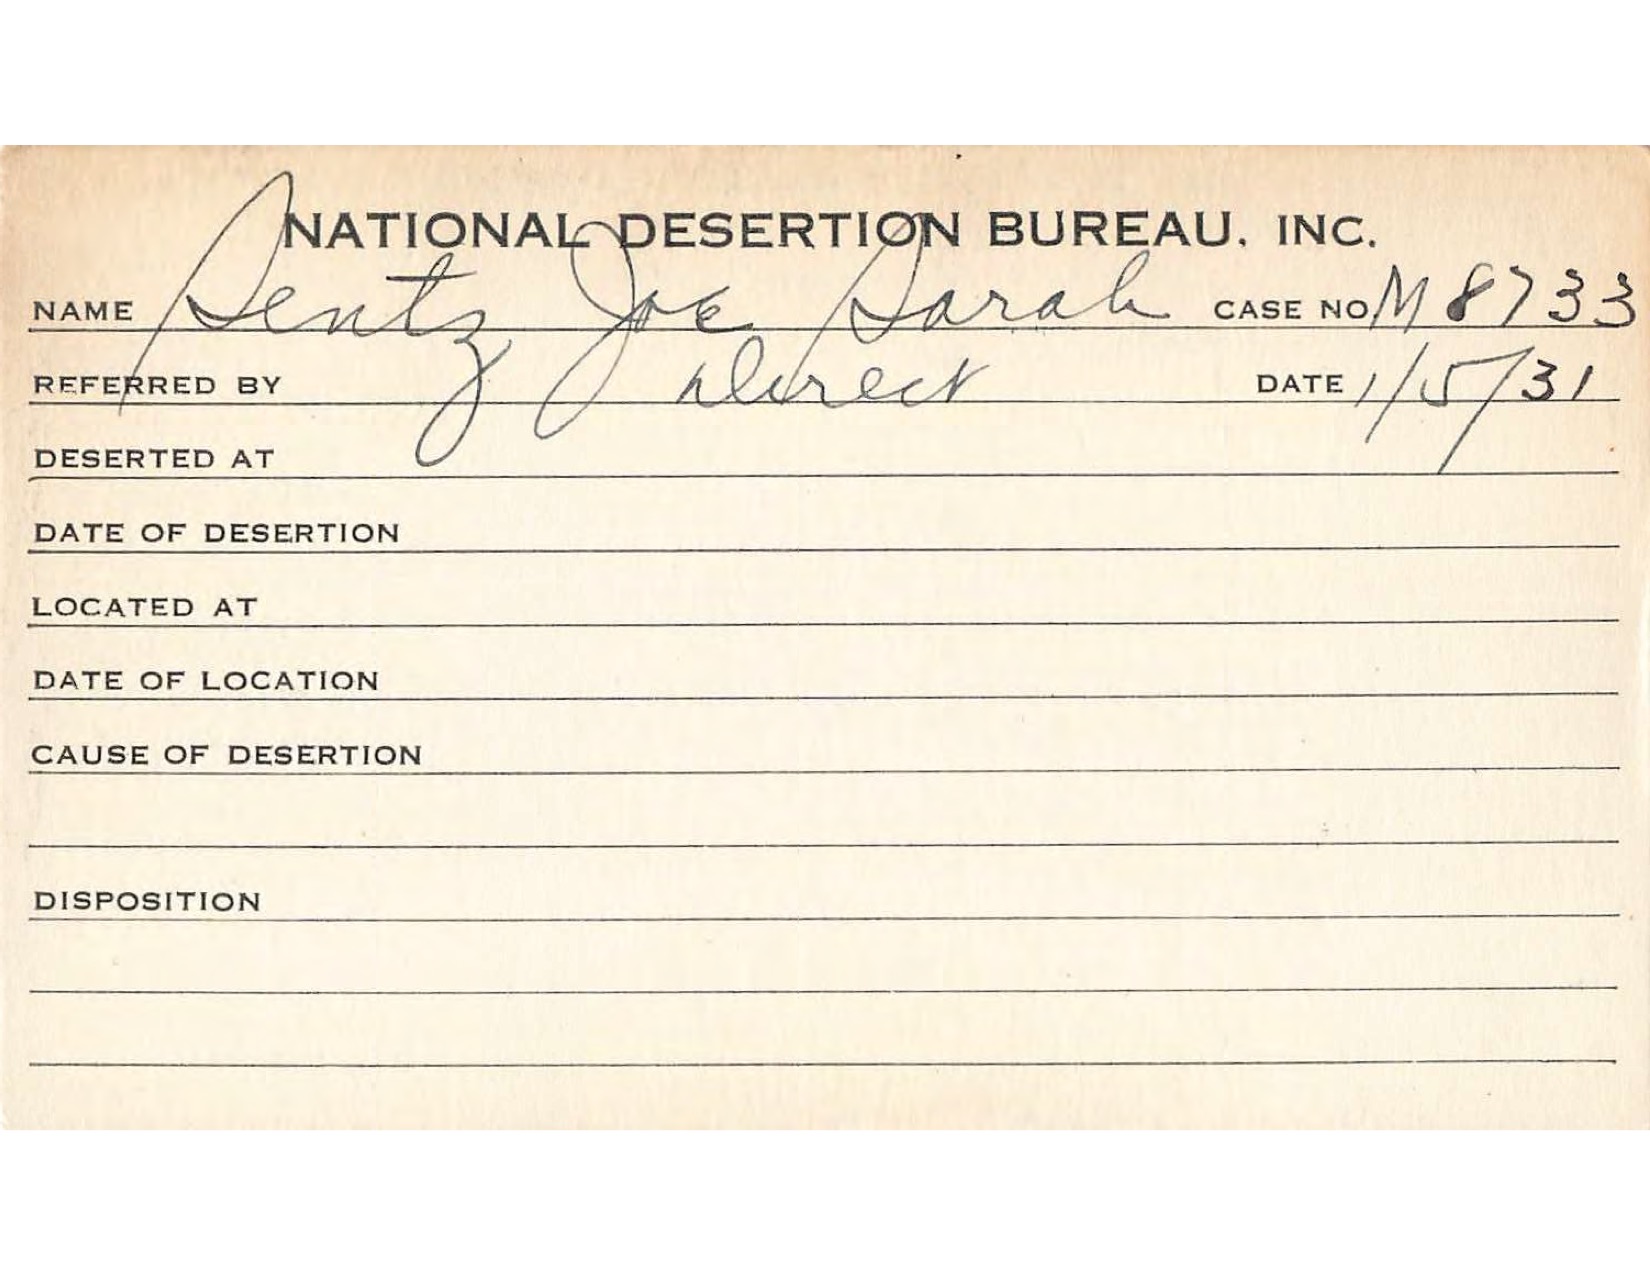 NATIONAL DESERTION BUREAU, INC.
NAME Sentz Joe Sarah CASE NO. M8733
REFERRED BY Direct DATE 1/5/31
DESERTED AT
DATE OF DESERTION
LOCATED AT
DATE OF LOCATION
CAUSE OF DESERTION
DISPOSITION